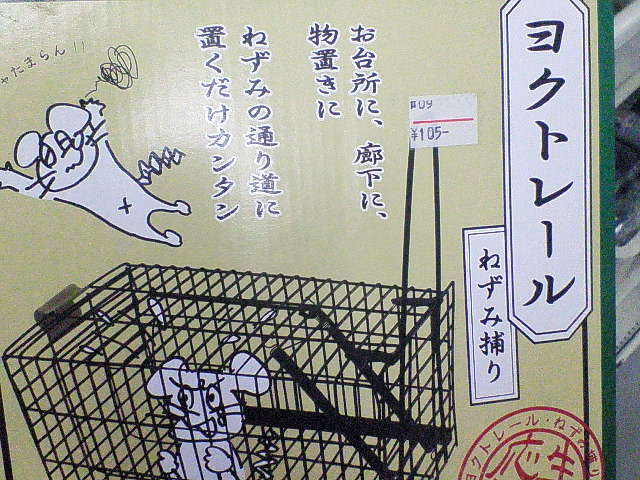 ヨクトレール
ねずみ捕り
お台所に、廊下に、
物置きに
ねずみの通り道に
置くだけカンタン
たまらん!!
#09
¥105-
ヨクトレール・ねずみ捕り